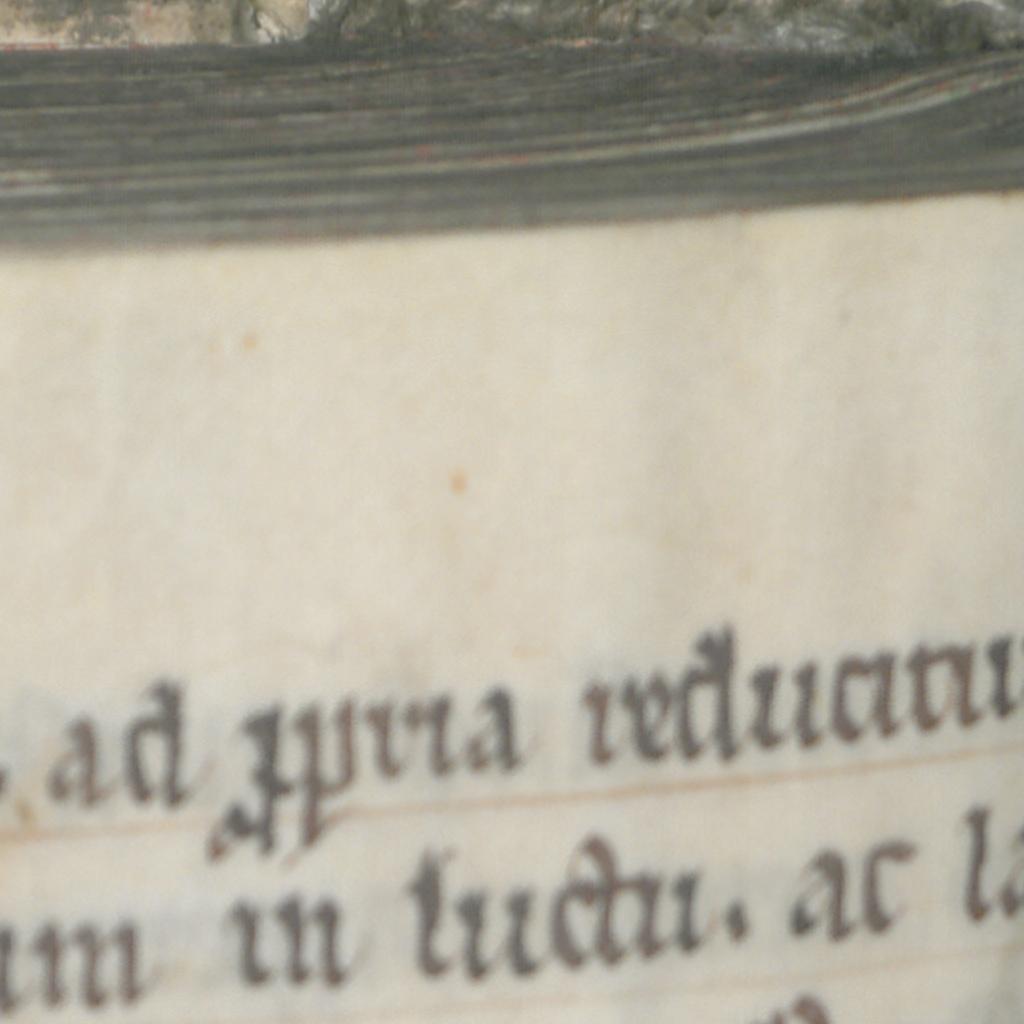 . ad ꝓpria reducatu
um in luctu. ac la